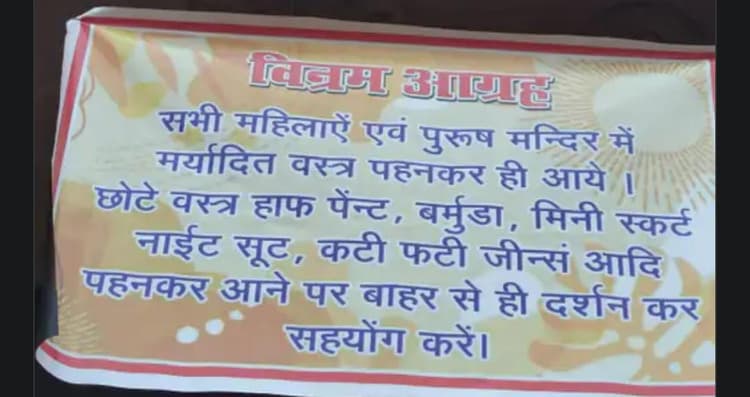 विनम्र आग्रह
सभी महिलाऐं एवं पुरूष मन्दिर में
मर्यादित वस्त्र पहनकर ही आये ।
छोटे वस्त्र हाफ पेंन्ट, बर्मुडा, मिनी स्कर्ट
नाईट सूट, कटी फटी जीन्सं आदि
पहनकर आने पर बाहर से ही दर्शन कर
सहयोंग करें।